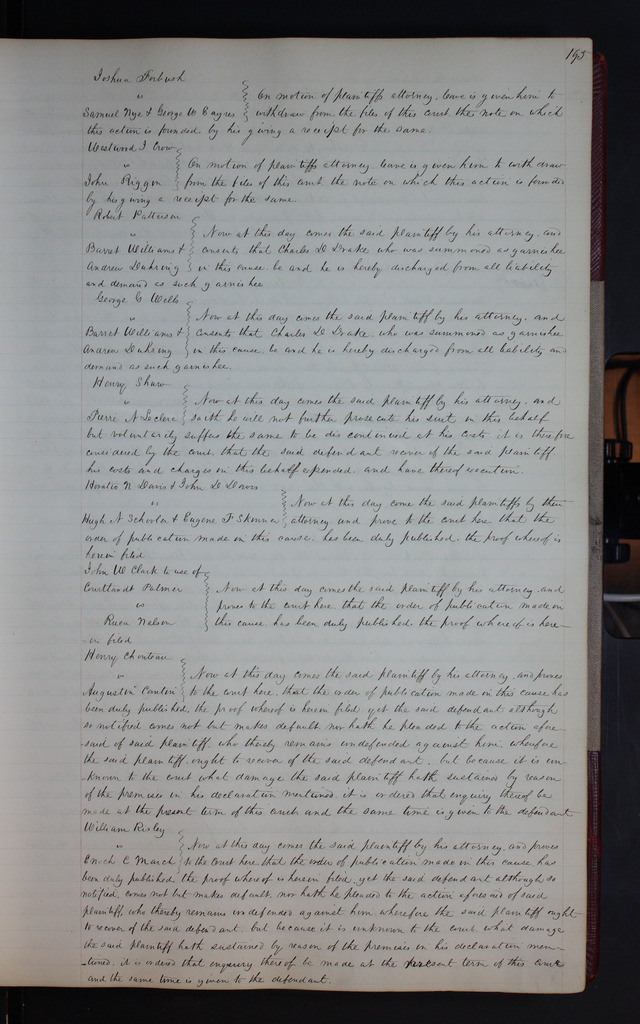 195
Joshua Forbush
vs On motion of plaintiffs attorney, leave is given him to
Samuel Nye & George W Eayres withdraw from the files of this court the note on which
this action is founded by his giving a receipt for the same.
Westwood T Crow
vs On motion of plaintiffs attorney leave is given him to withdraw
John Riggin from the files of this court the note on which this action is founded
by his giving a receipt for the same.
Robert Patterson
vs Now at this day comes the said plaintiff by his attorney, and
Barret Williams & consents that Charles D Drake who was summoned as garnishee
Andrew Duhring in this cause be and he is hereby discharged from all liability
and demand as such garnishee
George C Wells
vs Now at this day comes the said plaintiff by his attorney, and
Barret Williams & consents that Charles D Drake, who was summoned as garnishee
Andrew Duhring in this cause, be and he is hereby discharged from all liability and
demand as such garnishee.
Henry Shaw
vs Now at this day comes the said plaintiff by his attorney, and
Pierre A Leclere saith he will not further prosecute his suit in this behalf
but voluntarily suffers the same to be discontinued at his costs. it is therefore
considered by the court, that the said defendant recover of the said plaintiff
his costs and charges in this behalf expended, and have thereof execution.
Horatio N Davis & John D Davis
vs Now at this day come the said plaintiffs by their
Hugh A Schooler & Eugene F Skinner attorney and prove to the court here that the
order of publication made in this cause, has been duly published, the proof whereof is
herein filed
John W Clark to use of
Courtlandt Palmer Now at this day comes the said plaintiff by his attorney, and
vs proves to the court here, that the order of publication made in
Nelson this cause, has been duly published, the proof whereof is here-
in filed
Henry Chouteau
vs Now at this day comes the said plaintiff by his attorney, and proves
Augustin to the court here, that the order of publication made in this cause has
been duly published, the proof whereof is herein filed, yet the said defendant although
so notified comes not but makes default nor hath he pleaded to the action afore-
said of said plaintiff, who thereby remains undefended against him. wherefore
the said plaintiff ought to recover of the said defendant, but because it is un-
known to the court what damage the said plaintiff hath sustained by reason
of the premises in his declaration mentioned, it is ordered that enquiry thereof be
made at the present term of this court and the same time is given to the defendant
William Risley
vs Now at this day comes the said plaintiff by his attorney, and proves
Enoch C March to the court here, that the order of publication made in this cause has
been duly published, the proof whereof is herein filed, yet the said defendant although so
notified, comes not but makes default, nor hath he pleaded to the action aforesaid of said
plaintiff, who thereby remains undefended against him, wherefore the said plaintiff ought
to recover of the said defendant, but because it is unknown to the court what damage
the said plaintiff hath sustained by reason of the premises in his declaration men-
tioned, it is ordered that enquiry thereof be made at the present term of this court
and the same time is given to the defendant.